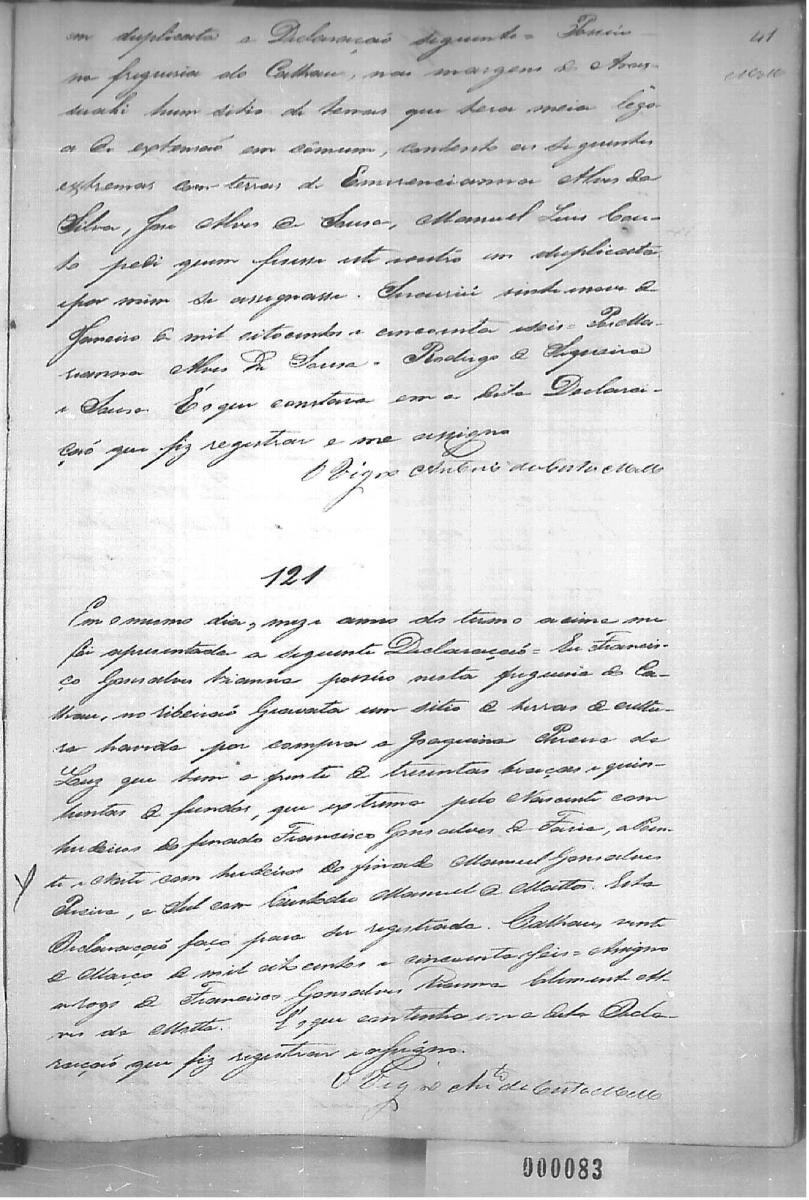 em duplicata a Declaração seguinte = Possúo
41
na freguesia do Calháu, nas margens do Aras-
Mello
suahi hum sitio de terras que terá meia lego-
a de extensaõ em cômum, contento as seguintes
extremas com terras de Emerencianna Alves da
Silva, José Alves de Sousa, Manuel Luis Cou-
to pedi quem fisesse este e outro em duplicata
e por mim se assignasse. Sucuriú vinte nove de
Janeiro de mil oitocentos e cincoenta e seis = Por Ma-
rianna Alves de Sousa - Rodrigo de Siqueira
e Sousa. É o que constava em a dita Declara-
çaõ que fiz registrar e me assigno
O Vigrо Antonio da Costa Mello
121
Em o mesmo dia, mez e anno do termo acima me
foi apresentada a seguinte Declaraçaõ = Eu Francis-
ço Gonsalves Vianna possúo nesta freguesia do Ca-
lhau, no ribeiraõ Gravata um sitio de terras de cultu-
ra havida por compra a Joaquina Pereira da
Luz que tem de frente de tresentas braças e quin-
hentas de fundos, que extrema pelo Nascente com
herdeiros do finado Francisco Gonsalves de Faria, a Poen-
te e Norte com herdeiros do finado Manuel Gonsalves
Pereira, e Sul com Custodio Manuel de Mattos. Esta
Declaraçaõ faço para ser registrada. Calhau vinte
de Março de mil oitocentos e cincoenta e seis = Assigno
a rogo de Francisco Gonsalves Vianna Clemente Al-
ves da Motta. É o que continha em a dita Decla-
raçaõ que fiz registrar e assigno.
O Vigrо Anto da Costa Mello
000083